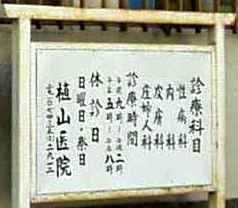 診療科目
性病科
内科
皮膚科
産婦人科
診療時間
午前九時〜午後二時
午後五時〜午后八時
休診日
日曜日・祭日
植山医院